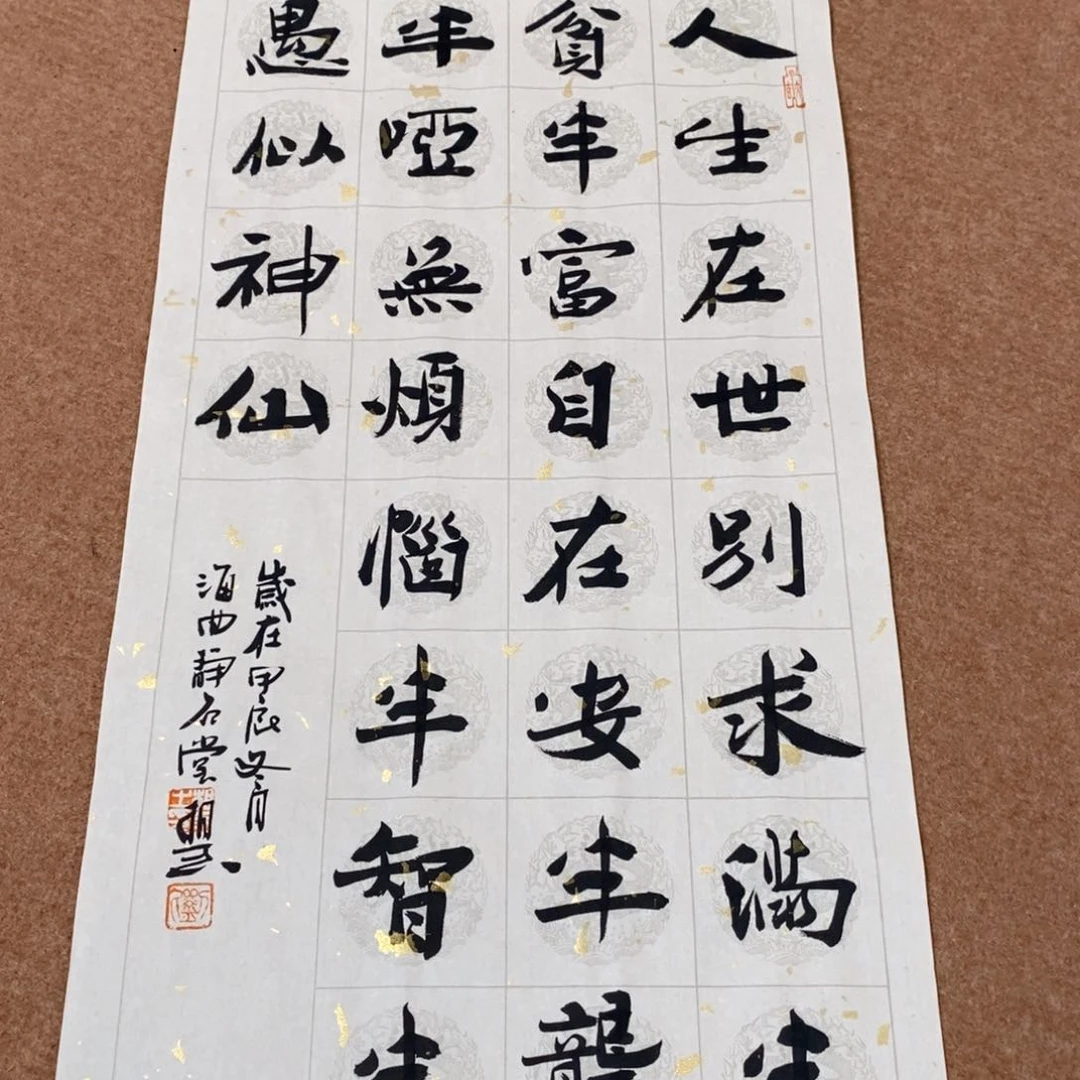 人生在世别求满半
貧半富自在安半聾
半啞無煩惱半智半
愚似神仙
歲在甲辰冬月
海曲靜石堂